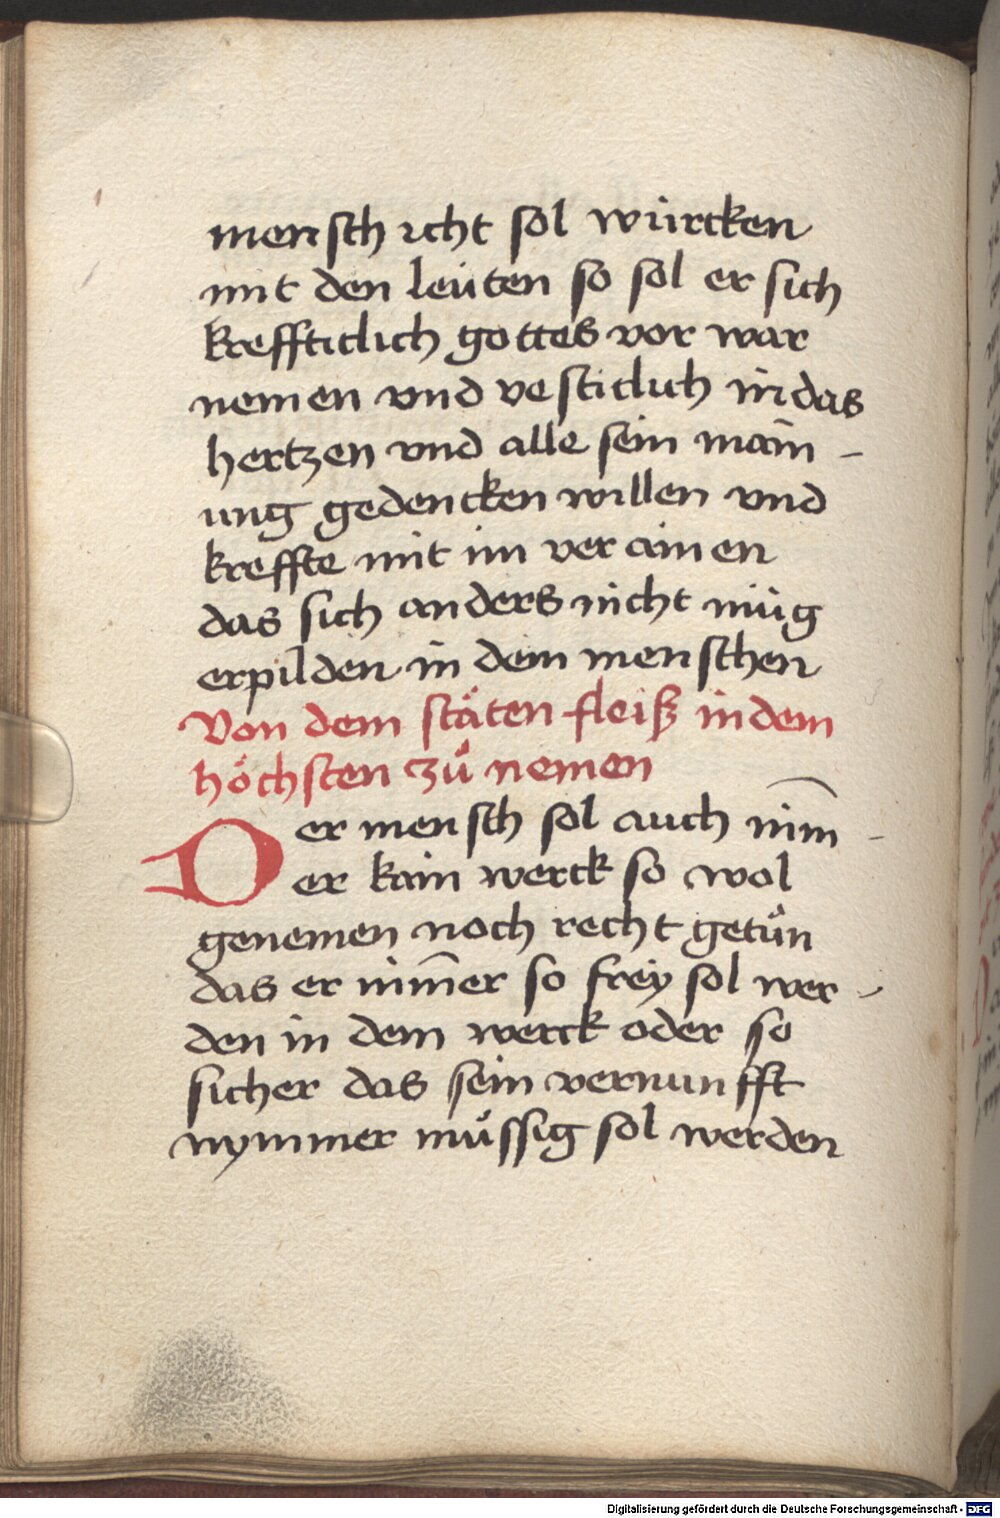 mensch icht sol würcken
mit den leüten so sol er sich
kreffticlich gottes vor war
nemen vnd vesticlich in das
hertzen vnd alle sein main -
ung gedencken willen vnd
kreffte mit im verainen
das sich anders nicht müg
erpilden in dem menschen
Von dem stäten fleiß in dem
höchsten zuͦ nemen
Der mensch sol auch nim̅ -
er kain werck so wol
genemen noch recht getuͦn
das er im̅er so frey sol wer -
den in dem werck oder so
sicher das sein vernunfft
nymmer muͦssig sol werden
Digitalisierung gefördert durch die Deutsche Forschungsgemeinschaft - DFG